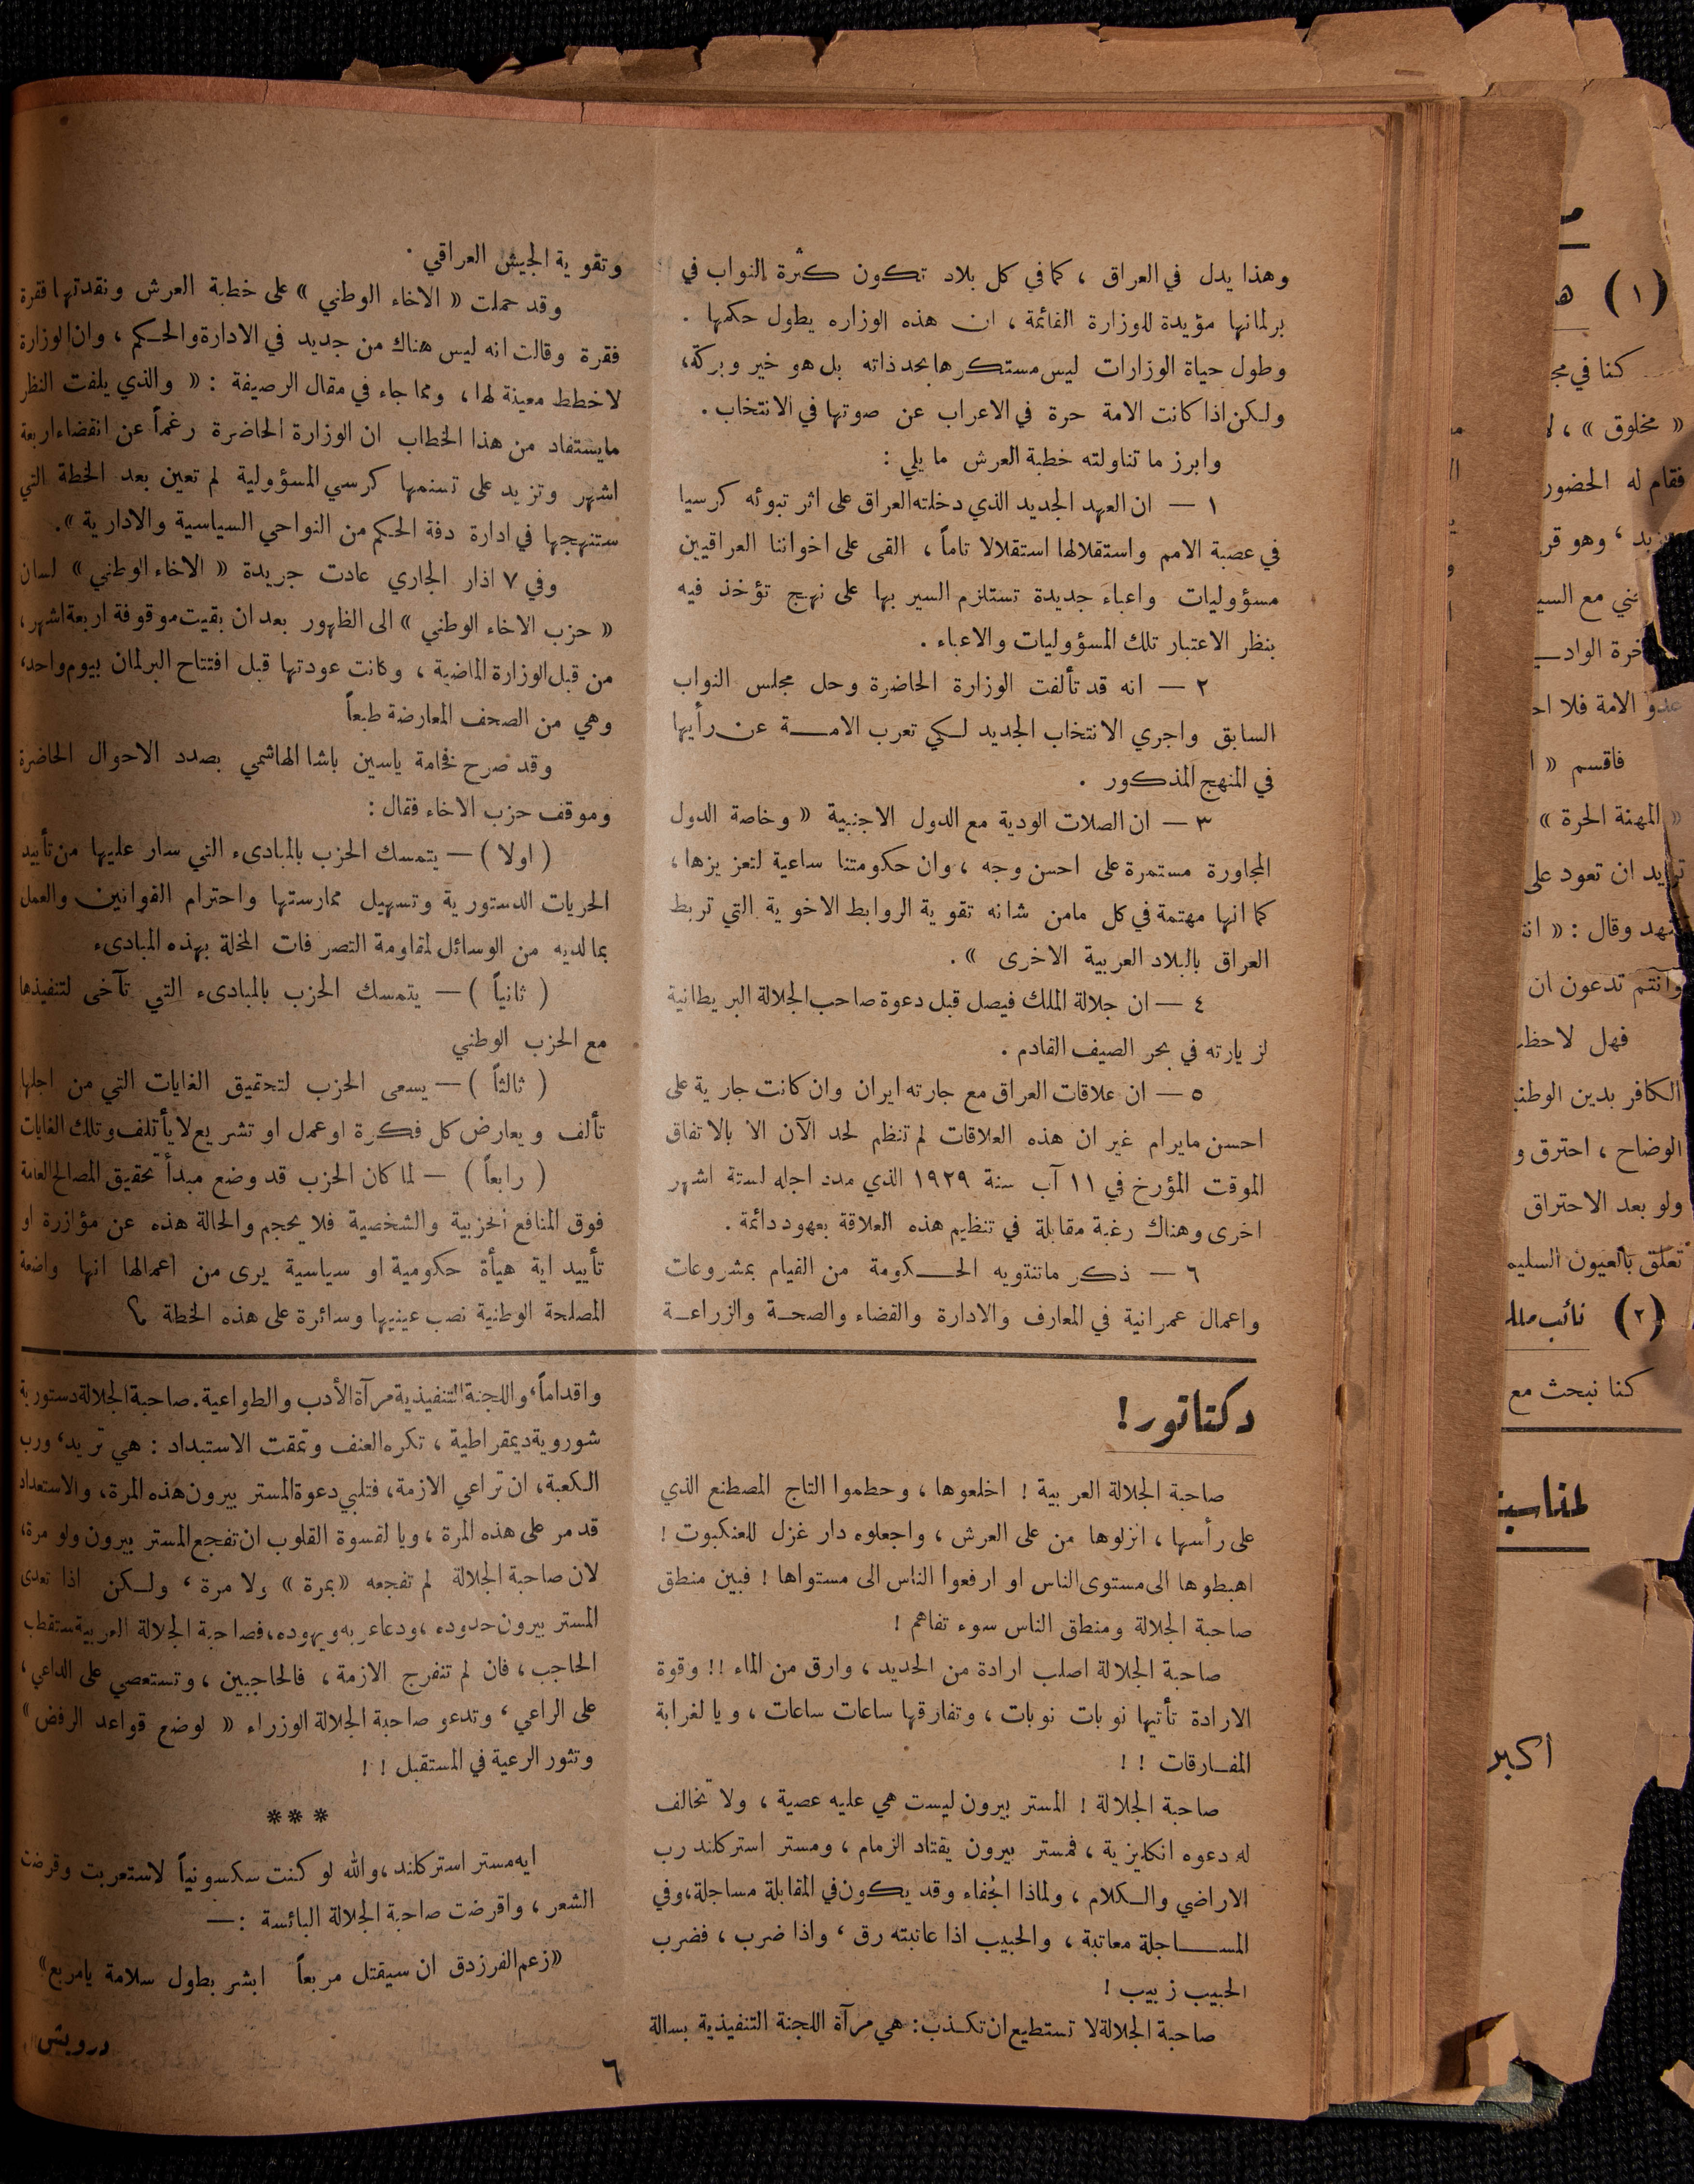 وهذا يدل في العراق ، كما في كل بلاد تكون كثرة النواب في
برلمانها مؤيدة للوزارة القائمة ، ان هذه الوزاره يطول حكمها .
وطول حياة الوزارات ليس مستكرها بحد ذاته بل هو خير وبركة ،
ولكن اذا كانت الامة حرة في الاعراب عن صوتها في الانتخاب .
وابرز ما تناولته خطبة العرش ما يلي :
١ — ان العهد الجديد الذي دخلته العراق على اثر تبوئه كرسيا
في عصبة الامم واستقلالها استقلالا تاماً ، القى على اخواننا العراقيين
مسؤوليات واعباء جديدة تستلزم السير بها على نهج تؤخذ فيه
بنظر الاعتبار تلك المسؤوليات والاعباء .
٢ — انه قد تألفت الوزارة الحاضرة وحل مجلس النواب
السابق واجري الانتخاب الجديد لكي تعرب الامة عن رأيها
في المنهج المذكور .
٣ — ان الصلات الودية مع الدول الاجنبية « وخاصة الدول
المجاورة مستمرة على احسن وجه ، وان حكومتنا ساعية لتعزيزها ،
كما انها مهتمة في كل مامن شانه تقوية الروابط الاخوية التي تربط
العراق بالبلاد العربية الاخرى » .
٤ — ان جلالة الملك فيصل قبل دعوة صاحب الجلالة البريطانية
لزيارته في بحر الصيف القادم .
٥ — ان علاقات العراق مع جارته ايران وان كانت جارية على
احسن مايرام غير ان هذه العلاقات لم تنظم لحد الآن الا بالاتفاق
الموقت المؤرخ في ١١ آب سنة ١٩٢٩ الذي مدد اجله لستة اشهر
اخرى وهناك رغبة مقابلة في تنظيم هذه العلاقة بعهود دائمة .
٦ — ذكر ماتنتويه الحكومة من القيام بمشروعات
واعمال عمرانية في المعارف والادارة والقضاء والصحة والزراعة
وتقوية الجيش العراقي .
وقد حملت « الاخاء الوطني » على خطبة العرش ونقدتها فقرة
فقرة وقالت انه ليس هناك من جديد في الادارة والحكم ، وان الوزارة
لاخطط معينة لها ، ومما جاء في مقال الرصيفة : « والذي يلفت النظر
مايستفاد من هذا الخطاب ان الوزارة الحاضرة رغماً عن انقضاء اربعة
اشهر وتزيد على تسنمها كرسي المسؤولية لم تعين بعد الخطة التي
ستنهجها في ادارة دفة الحكم من النواحي السياسية والادارية » .
وفي ٧ اذار الجاري عادت جريدة « الاخاء الوطني » لسان
« حزب الاخاء الوطني » الى الظهور بعد ان بقيت موقوفة اربعة اشهر ،
من قبل الوزارة الماضية ، وكانت عودتها قبل افتتاح البرلمان بيوم واحد ،
وهي من الصحف المعارضة طبعاً
وقد صرح فخامة ياسين باشا الهاشمي بصدد الاحوال الحاضرة
وموقف حزب الاخاء فقال :
( اولا ) — يتمسك الحزب بالمبادىء التي سار عليها من تأييد
الحريات الدستورية وتسهيل ممارستها واحترام القوانين والعمل
بما لديه من الوسائل لمقاومة التصرفات المخلة بهذه المبادىء
( ثانياً ) — يتمسك الحزب بالمبادىء التي تآخى لتنفيذها
مع الحزب الوطني
( ثالثاً ) — يسعى الحزب لتحقيق الغايات التي من اجلها
تألف ويعارض كل فكرة او عمل او تشريع لا يأتلف وتلك الغايات
( رابعاً ) — لما كان الحزب قد وضع مبدأ تحقيق المصالح العامة
فوق المنافع الحزبية والشخصية فلا يحجم والحالة هذه عن مؤازرة او
تأييد اية هيأة حكومية او سياسية يرى من اعمالها انها واضعة
المصلحة الوطنية نصب عينيها وسائرة على هذه الخطة ؟
دكتاتور !
صاحبة الجلالة العربية ! اخلعوها ، وحطموا التاج المصطنع الذي
على رأسها ، انزلوها من على العرش ، واجعلوه دار غزل للعنكبوت !
اهبطوها الى مستوى الناس او ارفعوا الناس الى مستواها ! فبين منطق
صاحبة الجلالة ومنطق الناس سوء تفاهم !
صاحبة الجلالة اصلب ارادة من الحديد ، وارق من الماء !! وقوة
الارادة تأتيها نوبات نوبات ، وتفارقها ساعات ساعات ، ويا لغرابة
المفارقات ! !
صاحبة الجلالة ! المستر بيرون ليست هي عليه عصية ، ولا تخالف
له دعوه انكليزية ، فمستر بيرون يقتاد الزمام ، ومستر استركلند رب
الاراضي والكلام ، ولماذا الجفاء وقد يكون في المقابلة مساجلة ، وفي
المساجلة معاتبة ، والحبيب اذا عاتبته رق ، واذا ضرب ، فضرب
الحبيب زبيب !
صاحبة الجلالة لا تستطيع ان تكذب : هي مرآة اللجنة التنفيذية بسالة
واقداماً ، واللجنة التنفيذية مرآة الأدب والطواعية . صاحبة الجلالة دستورية
شوروية ديمقراطية ، تكره العنف وتمقت الاستبداد : هي تريد ، ورب
الكعبة ، ان تراعي الازمة ، فتلبي دعوة المستر بيرون هذه المرة ، والاستعداد
قد مر على هذه المرة ، ويا لقسوة القلوب ان تفجع المستر بيرون ولو مرة ،
لان صاحبة الجلالة لم تفجعه « بمرة » ولا مرة ، ولكن اذا تعدى
المستر بيرون حدوده ، ودعا عربه ويهوده ، فصاحبة الجلالة العربية ستقطب
الحاجب ، فان لم تنفرج الازمة ، فالحاجبين ، وتستعصي على الداعي ،
على الراعي ، وتدعو صاحبة الجلالة الوزراء « لوضع قواعد الرفض »
وتثور الرعية في المستقبل ! !
***
ايه مستر استركلند ، والله لو كنت سكسونياً لاستعربت وقرضت
الشعر ، واقرضت صاحبة الجلالة البائسة : —
« زعم الفرزدق ان سيقتل مربعاً ابشر بطول سلامة يا مربع »
درويش
٦
( ١ )
كنا في
« مخلوق » ،
فقام له الحضور
وهو
مع
عدو الامة فلا
فاقسم «
« المهنة الحرة »
تريد ان تعود على
وقال : «
وانتم تدعون ان
فهل
الكافر بدين
الوضاح ، احترق
ولو بعد الاحتراق
تعلق بالعيون
( ٢ ) نائب
كنا نبحث مع
اكبر